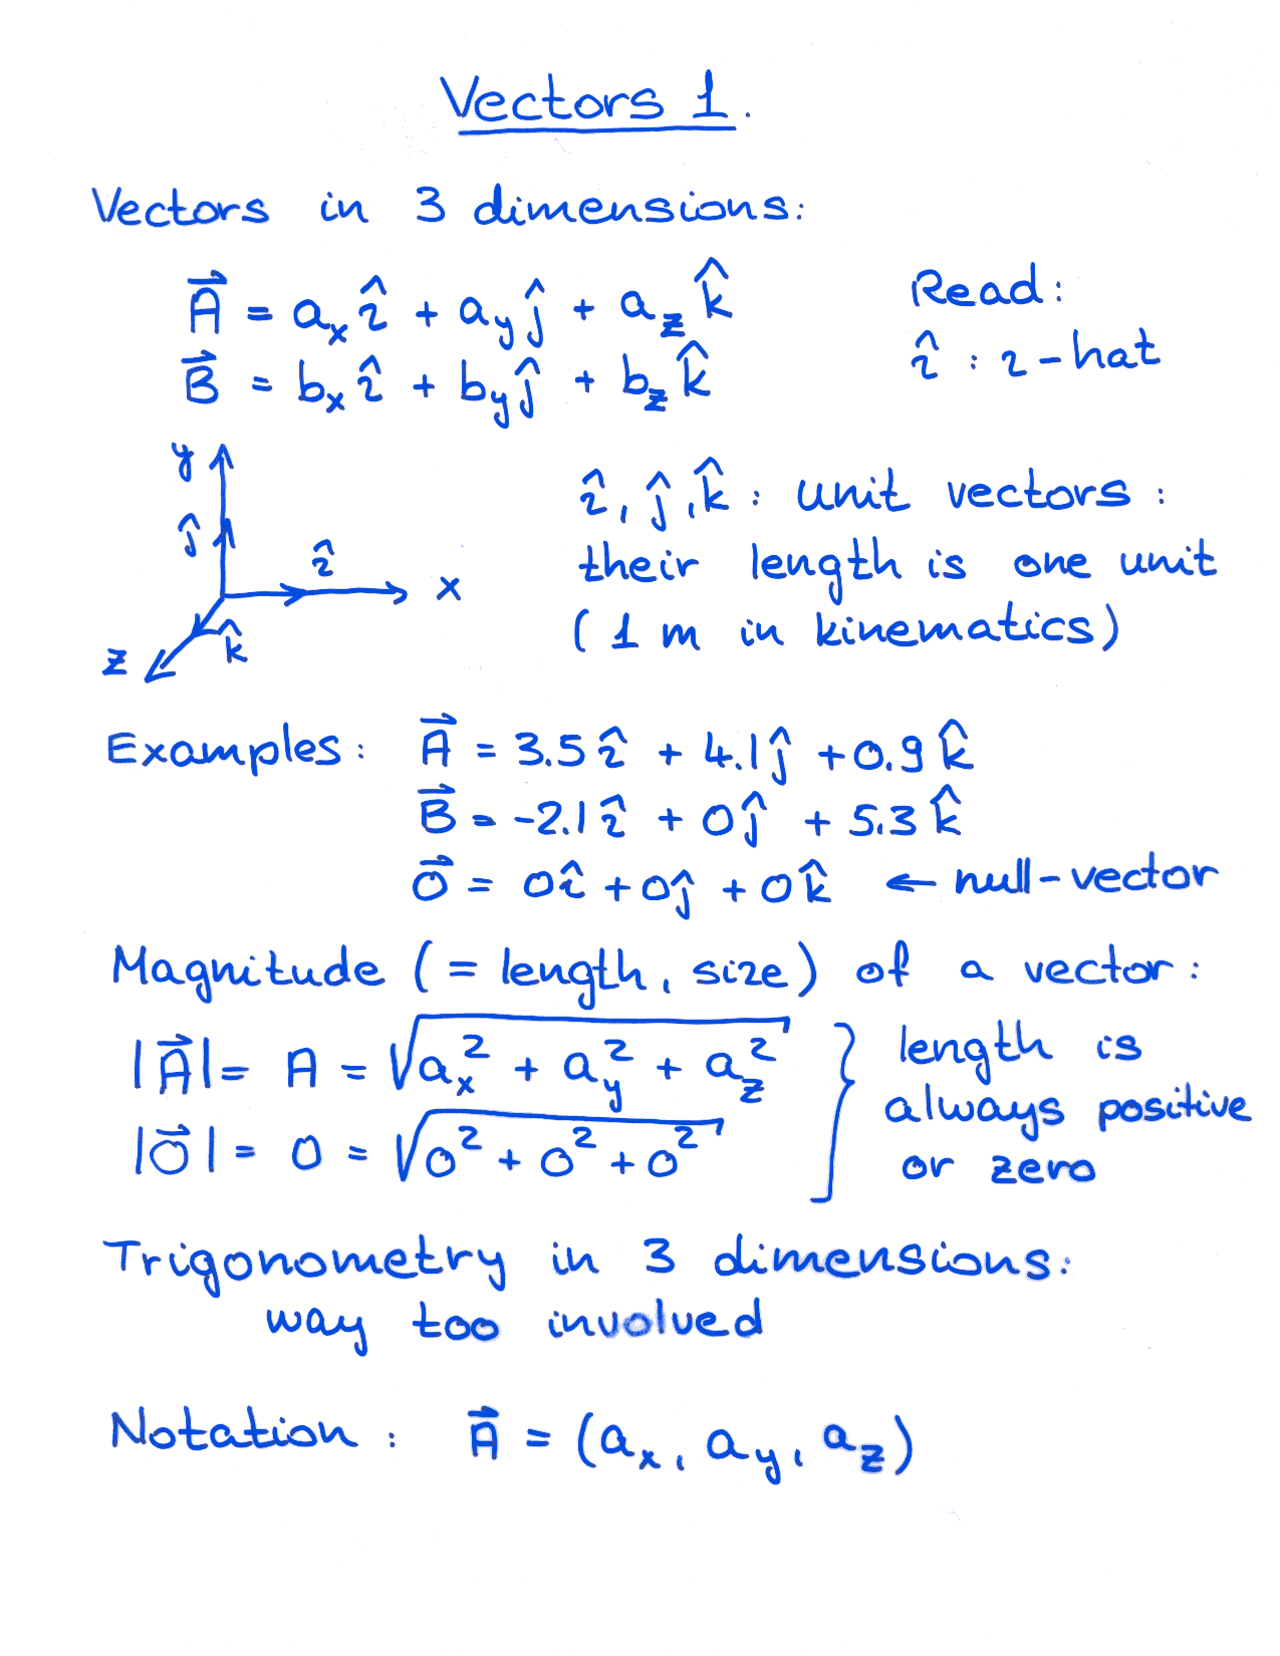 Vectors 1.
Vectors in 3 dimensions:
A⃗ = aₓ î + a_y ĵ + a_z k̂
Read:
B⃗ = bₓ î + b_y ĵ + b_z k̂
î : i-hat
y
ĵ
î
x
k̂
z
î, ĵ, k̂ : unit vectors :
their length is one unit
(1 m in kinematics)
Examples: A⃗ = 3.5 î + 4.1 ĵ + 0.9 k̂
B⃗ = -2.1 î + 0 ĵ + 5.3 k̂
0⃗ = 0 î + 0 ĵ + 0 k̂ ← null-vector
Magnitude (= length, size) of a vector:
|A⃗| = A = √(aₓ² + a_y² + a_z²)
|0⃗| = 0 = √(0² + 0² + 0²)
} length is
always positive
or zero
Trigonometry in 3 dimensions:
way too involved
Notation: A⃗ = (aₓ, a_y, a_z)